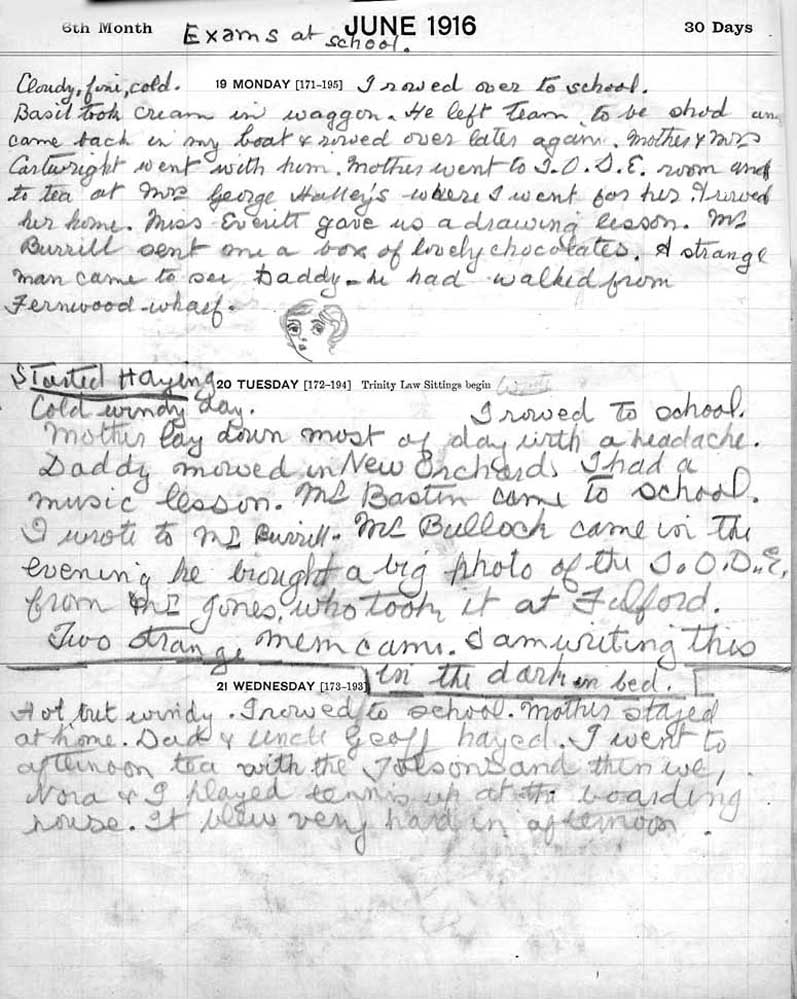 6th Month JUNE 1916 30 Days
Exams at school.
Cloudy, fine, cold. 19 MONDAY [171-195] I rowed over to school.
Basil took cream in waggon. He left team to be shod an
came back in my boat & rowed over later again. Mother & Mrs
Cartwright went with him. Mother went to I.O.D.E. room and
to tea at Mrs George Halley's where I went for her. I rowed
her home. Miss Everitt gave us a drawing lesson. Mr
Burrill sent me a box of lovely chocolates. A strange
man came to see Daddy - he had walked from
Fernwood wharf.
Started Haying 20 TUESDAY [172-194] Trinity Law Sittings begin
Cold windy day. I rowed to school.
Mother lay down most of day with a headache.
Daddy mowed in New Orchard. I had a
music lesson. Mr Bastin came to school.
I wrote to Mr Burrill. Mr Bullock came in the
evening he brought a big photo of the I.O.D.E.
from Mr Jones, who took it at Fulford.
Two strange men came. I am writing this
in the dark in bed.
21 WEDNESDAY [173-193]
Hot, but windy. I rowed to school. Mother stayed
at home. Dad & Uncle Geoff hayed. I went to
afternoon tea with the Tolsons and then we,
Nora & I played tennis up at the boarding
house. It blew very hard in afternoon.